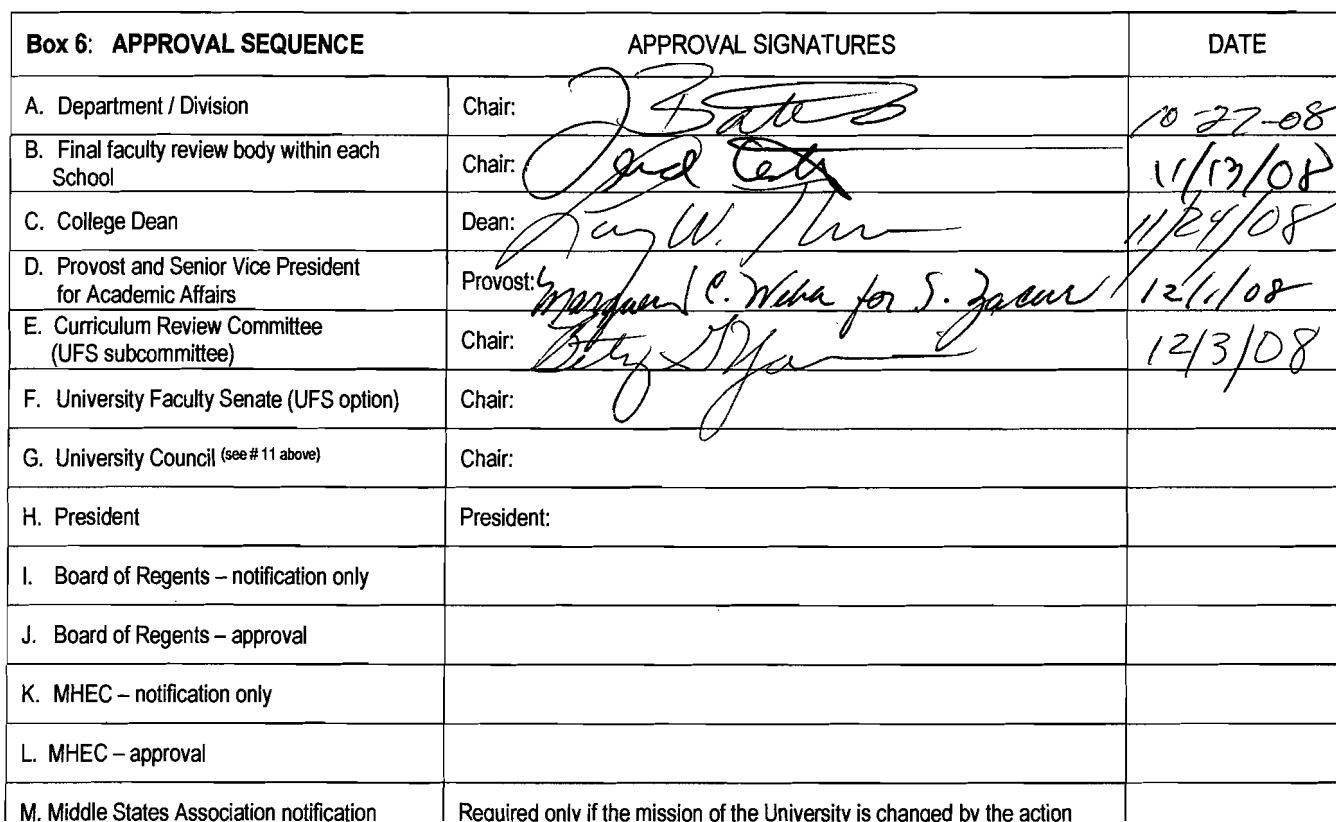 Box 6: APPROVAL SEQUENCE APPROVAL SIGNATURES DATE
A. Department / Division Chair: Bates 10-27-08
B. Final faculty review body within each
School Chair: 11/13/08
C. College Dean Dean: W. 11/24/08
D. Provost and Senior Vice President
for Academic Affairs Provost: C. for S. 12/1/08
E. Curriculum Review Committee
(UFS subcommittee) Chair: Betsy 12/3/08
F. University Faculty Senate (UFS option) Chair:
G. University Council (see # 11 above) Chair:
H. President President:
I. Board of Regents – notification only
J. Board of Regents – approval
K. MHEC – notification only
L. MHEC – approval
M. Middle States Association notification Required only if the mission of the University is changed by the action